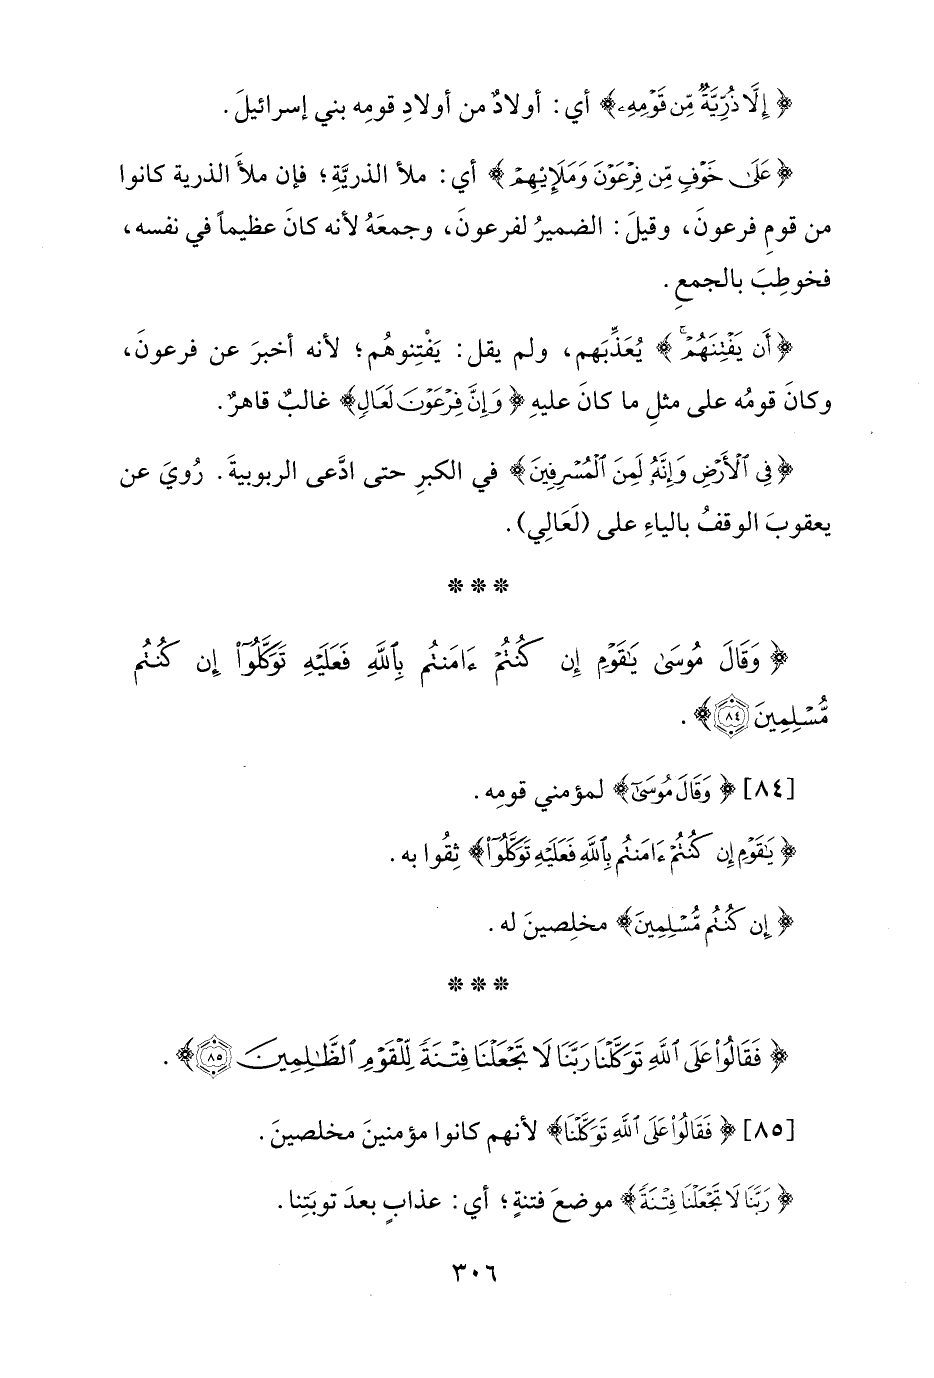 ﴿ إِلَّا ذُرِّيَّةٌ مِّن قَوْمِهِۦ ﴾ أي: أولادٌ من أولادِ قومِه بني إسرائيلَ.
﴿ عَلَىٰ خَوْفٍ مِّن فِرْعَوْنَ وَمَلَإِي۟هِمْ ﴾ أي: ملأ الذريَّةِ؛ فإن ملأَ الذرية كانوا
من قومِ فرعونَ، وقيلَ: الضميرُ لفرعونَ، وجمعَهُ لأنه كانَ عظيماً في نفسه،
فخوطِبَ بالجمعِ.
﴿ أَن يَفْتِنَهُمْ ۚ ﴾ يُعَذِّبَهم، ولم يقل: يَفْتِنوهُم؛ لأنه أخبرَ عن فرعونَ،
وكانَ قومُه على مثلِ ما كانَ عليهِ ﴿ وَإِنَّ فِرْعَوْنَ لَعَالٍ ﴾ غالبٌ قاهرٌ.
﴿ فِي ٱلْأَرْضِ وَإِنَّهُۥ لَمِنَ ٱلْمُسْرِفِينَ ﴾ في الكبرِ حتى ادَّعى الربوبيةَ. رُويَ عن
يعقوبَ الوقفُ بالياءِ على (لَعَالِي).
***
﴿ وَقَالَ مُوسَىٰ يَٰقَوْمِ إِن كُنتُمْ ءَامَنتُم بِٱللَّهِ فَعَلَيْهِ تَوَكَّلُوٓا۟ إِن كُنتُم
مُّسْلِمِينَ ٨٤ ﴾.
[٨٤] ﴿ وَقَالَ مُوسَىٰ ﴾ لمؤمني قومِه.
﴿ يَٰقَوْمِ إِن كُنتُمْ ءَامَنتُم بِٱللَّهِ فَعَلَيْهِ تَوَكَّلُوٓا۟ ﴾ ثِقُوا به.
﴿ إِن كُنتُم مُّسْلِمِينَ ﴾ مخلِصينَ له.
***
﴿ فَقَالُوا۟ عَلَى ٱللَّهِ تَوَكَّلْنَا رَبَّنَا لَا تَجْعَلْنَا فِتْنَةً لِّلْقَوْمِ ٱلظَّٰلِمِينَ ٨٥ ﴾.
[٨٥] ﴿ فَقَالُوا۟ عَلَى ٱللَّهِ تَوَكَّلْنَا ﴾ لأنهم كانوا مؤمنينَ مخلصينَ.
﴿ رَبَّنَا لَا تَجْعَلْنَا فِتْنَةً ﴾ موضعَ فتنةٍ؛ أي: عذابٍ بعدَ توبَتِنا.
٣٠٦